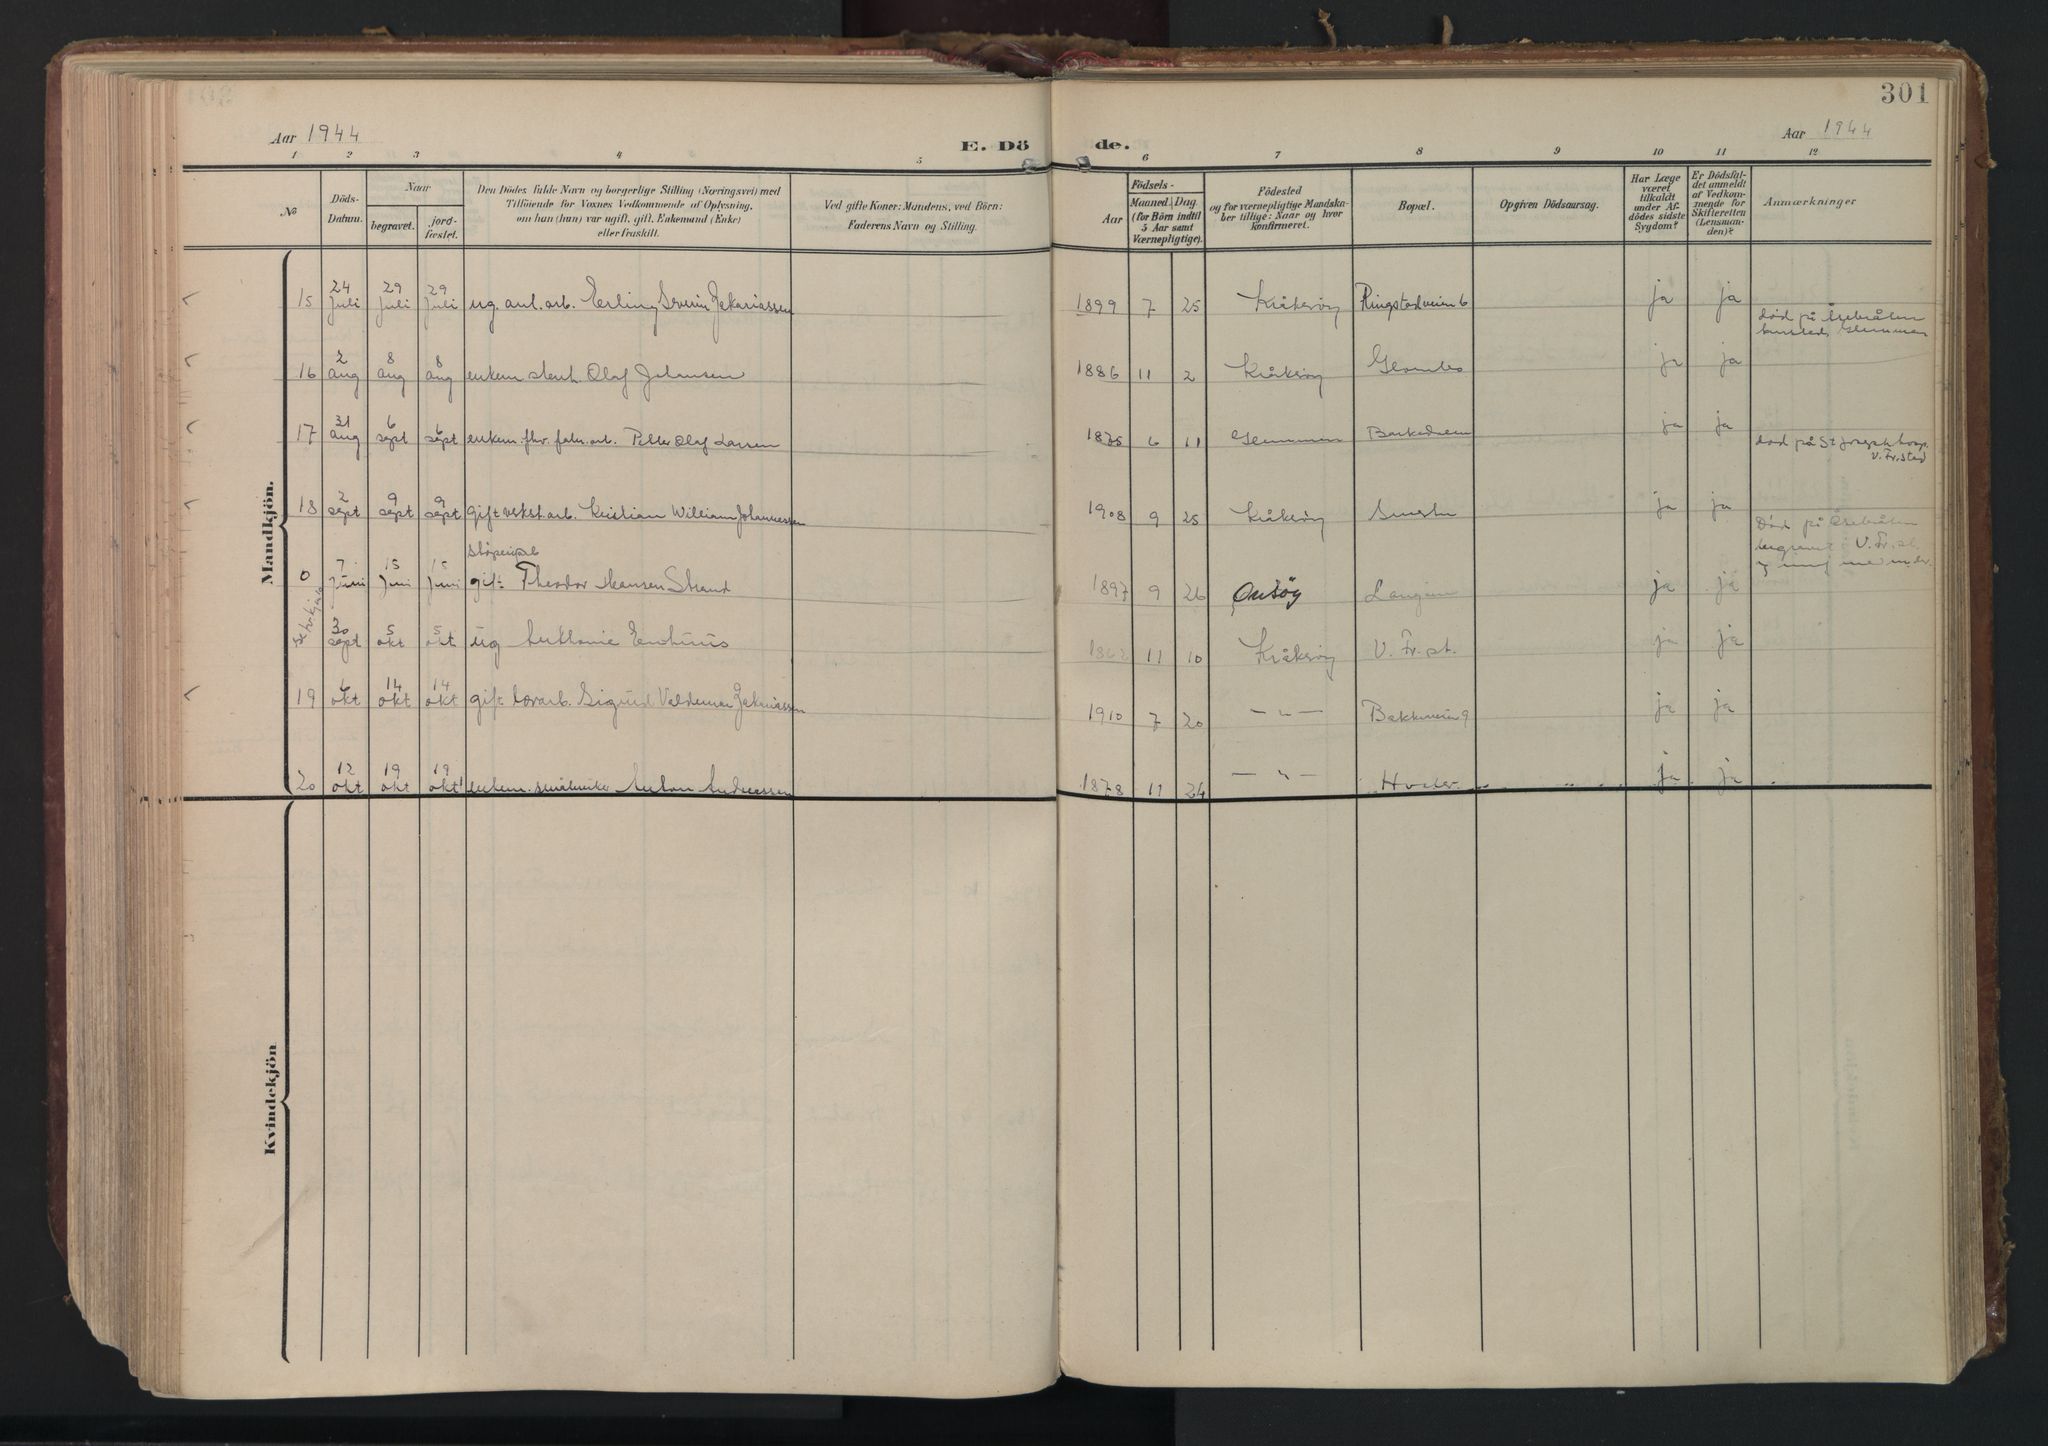 301
Aar 1944
E. Dö
de.
Aar 1944
1 2 3 4 5 6 7 8 9 10 11 12
No
Döds-
Datum.
Naar
begravet.
jord-
fæstet.
Den Dödes fulde Navn og borgerlige Stilling (Næringsvei) med
Tilföiende for Voxnes Vedkommende af Oplysning,
om han (hun) var ugift, gift, Enkemand (Enke)
eller fraskilt.
Ved gifte Koner: Mandens, ved Börn:
Faderens Navn og Stilling.
Födsels-
Aar
Maaned. Dag.
(for Börn indtil
5 Aar samt
Værnepligtige).
Födested
og for værnepligtige Mandska-
ber tillige: Naar og hvor
konfirmeret.
Bopæl.
Opgiven Dödsaarsag.
Har Læge
været
tilkaldt
under Af-
dödes sidste
Sygdom?
Er Dödsfal-
det anmeldt
af Vedkom-
mende for
Skifteretten
(Lensman-
den)?
Anmærkninger
Mandkjön.
15 24 Juli 29 Juli 29 Juli ug. anl. arb. Erling Severin Zakariassen 1899 7 25 Kråkerøy Ringstadveien 6 ja ja
død på
16 2 aug 8 aug 8 aug enkem. Olaf Johansen 1886 11 2 Kråkerøy Glombo ja ja
17 31 aug 6 sept 6 sept enkem. fhv. fabr. arb. Petter Olaf Larsen 1875 6 11 Glemmen ja ja
død på St. Josephs hosp.
V. Fr.stad
18 2 sept 9 sept 9 sept gift verkst. arb. Kristian William Johannessen 1908 9 25 Kråkerøy Smertu ja ja
Død på
begravet V. Fr.st.
0 7 Juni 15 Juni 15 Juni gift Theodor Hansen Strand 1897 9 26 Onsøy ja ja
30 sept 5 okt 5 okt ug 11 10 Kråkerøy V. Fr.st. ja ja
19 6 okt 14 okt 14 okt gift Sigurd Valdemar Zakariassen 1910 7 20 — " — Bakkeveien 9 ja ja
20 12 okt 19 okt 19 okt enkem. småbruker Anton Andreassen 1878 11 24 — " — Hvaler ja ja
Kvindekjön